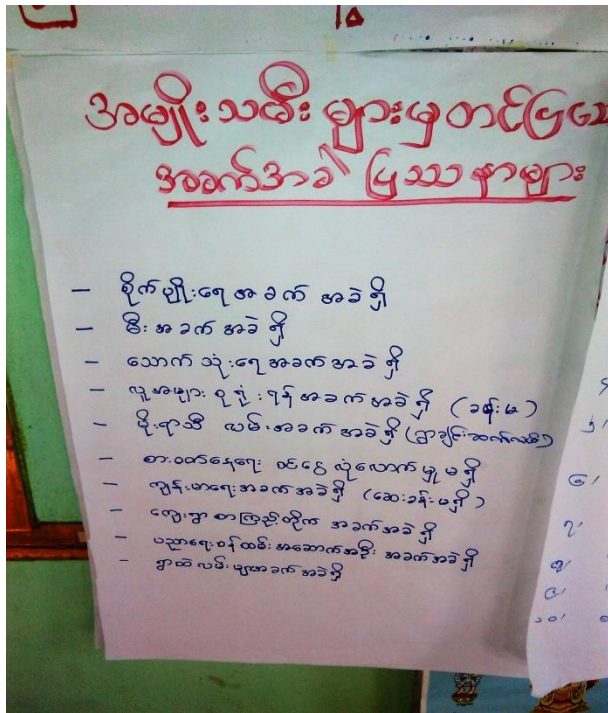 အမျိုးသမီးများမှတင်ပြသော
အခက်အခဲ ပြဿနာများ
- စိုက်ပျိုးရေအခက်အခဲရှိ
- မီးအခက်အခဲရှိ
- သောက်သုံးရေအခက်အခဲရှိ
- လူအများစုရုံးရန်အခက်အခဲရှိ (ခန်းမ)
- မိုးရာသီ လမ်းအခက်အခဲရှိ (ရွာချင်းဆက်လမ်း)
- စားဝတ်နေရေး ဝင်ငွေလုံလောက်မှုမရှိ
- ကျန်းမာရေးအခက်အခဲရှိ (ဆေးခန်းမရှိ)
- ကျေးရွာစာကြည့်တိုက် အခက်အခဲရှိ
- ပညာရေးဝန်ထမ်းအဆောက်အဦး အခက်အခဲရှိ
- ရွာထဲလမ်းများအခက်အခဲရှိ
၆၊
၇၊
၈၊
၉၊
၁၀၊